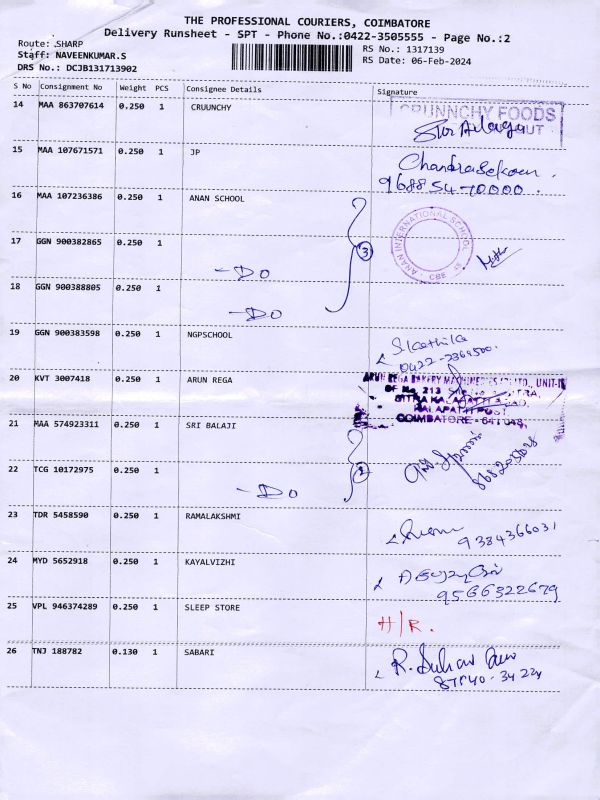 THE PROFESSIONAL COURIERS, COIMBATORE
Delivery Runsheet - SPT - Phone No.:0422-3505555 - Page No.:2
Route: SHARP
Staff: NAVEENKUMAR.S
DRS No.: DCJB131713902
RS No.: 1317139
RS Date: 06-Feb-2024
S No Consignment No Weight PCS Consignee Details Signature
14 MAA 863707614 0.250 1 CRUUNCHY
CRUNNCHY FOODS
15 MAA 107671571 0.250 1 JP Chandrasekaran
96885470000.
16 MAA 107236386 0.250 1 ANAN SCHOOL
ANAN INTERNATIONAL SCHOOL CBE
17 GGN 900382865 0.250 1
- DO 3
18 GGN 900388805 0.250 1
- DO
19 GGN 900383598 0.250 1 NGPSCHOOL S. Karthika
0422-2369500.
20 KVT 3007418 0.250 1 ARUN REGA
ARUN REGA BAKERY MACHINERIES LTD., UNIT-II
SF No. 213
KALAPATTI POST,
COIMBATORE - 641048,
21 MAA 574923311 0.250 1 SRI BALAJI
22 TCG 10172975 0.250 1
- DO 2
23 TDR 5458590 0.250 1 RAMALAKSHMI
9384366031
24 MYD 5652918 0.250 1 KAYALVIZHI
9566322679
25 VPL 946374289 0.250 1 SLEEP STORE H/R.
26 TNJ 188782 0.130 1 SABARI